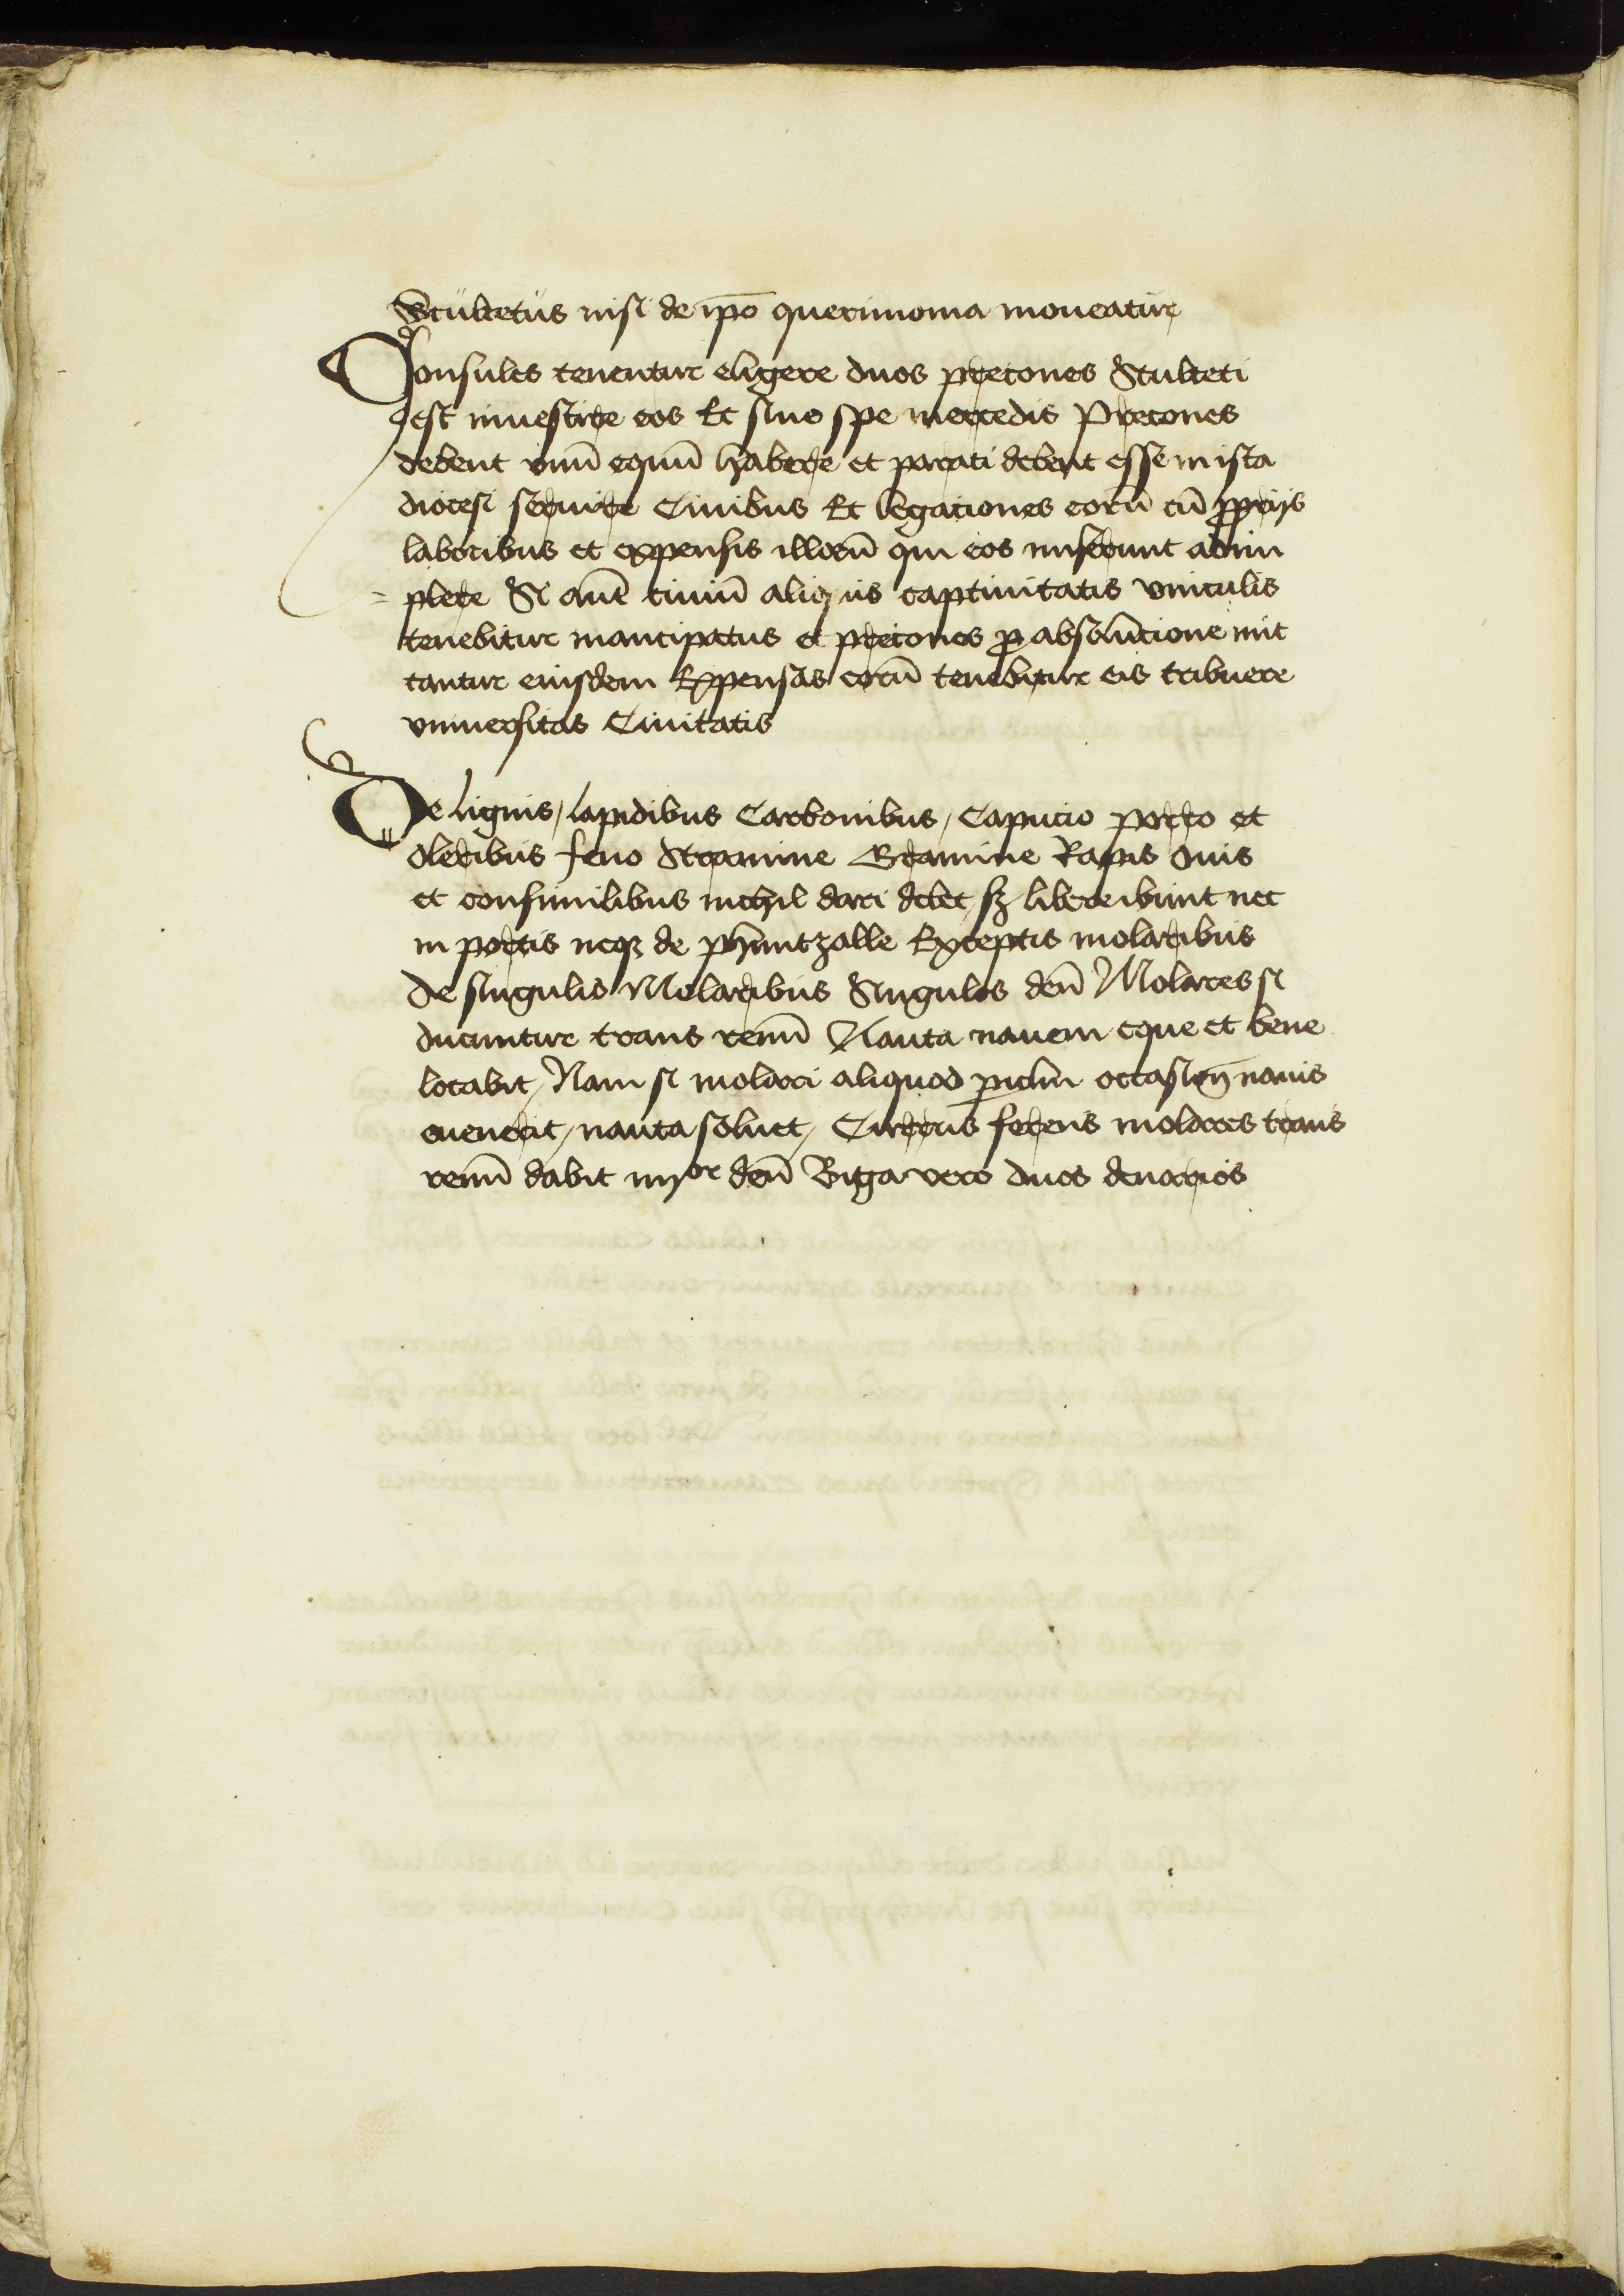 Scultetus nisi de ip̄o querimonia moueatur
Consules tenentur eligere duos precones Sculteti
est inuestire eos Et sine spe mercedis Precones
debent vnū equū habere et parati debent esse in ista
diocesi seruire Ciuibus Et legationes eorū cū proprijs
laboribus et expensis illorū qui eos miserunt adim
plere Si autē ciuiū aliquis captiuitatis vinculis
tenebitur mancipatus et precones pro absolucione mit
tantur eiusdem Expensas eorū tenebitur eis tribuere
vniuersitas Ciuitatis
De lignis, lapidibus Carbonibus, Capucio porro et
oleribus feno Stramine Gramine Rapis Ouis
et consimilibus nichil dari debet, sz libere ibunt nec
in portis neqz de phuntzalle Exceptis molaribus
de singulis Molaribus Singulos den̄ Molares si
ducuntur trans renū Nauta nauem eque et bene
locabit, Nam si molari aliquod pericłm occasion̄ nauis
euenerit, nauta soluet, Currus ferens molares trans
renū dabit iiij<sup>or</sup> den̄ Biga vero duos denarios